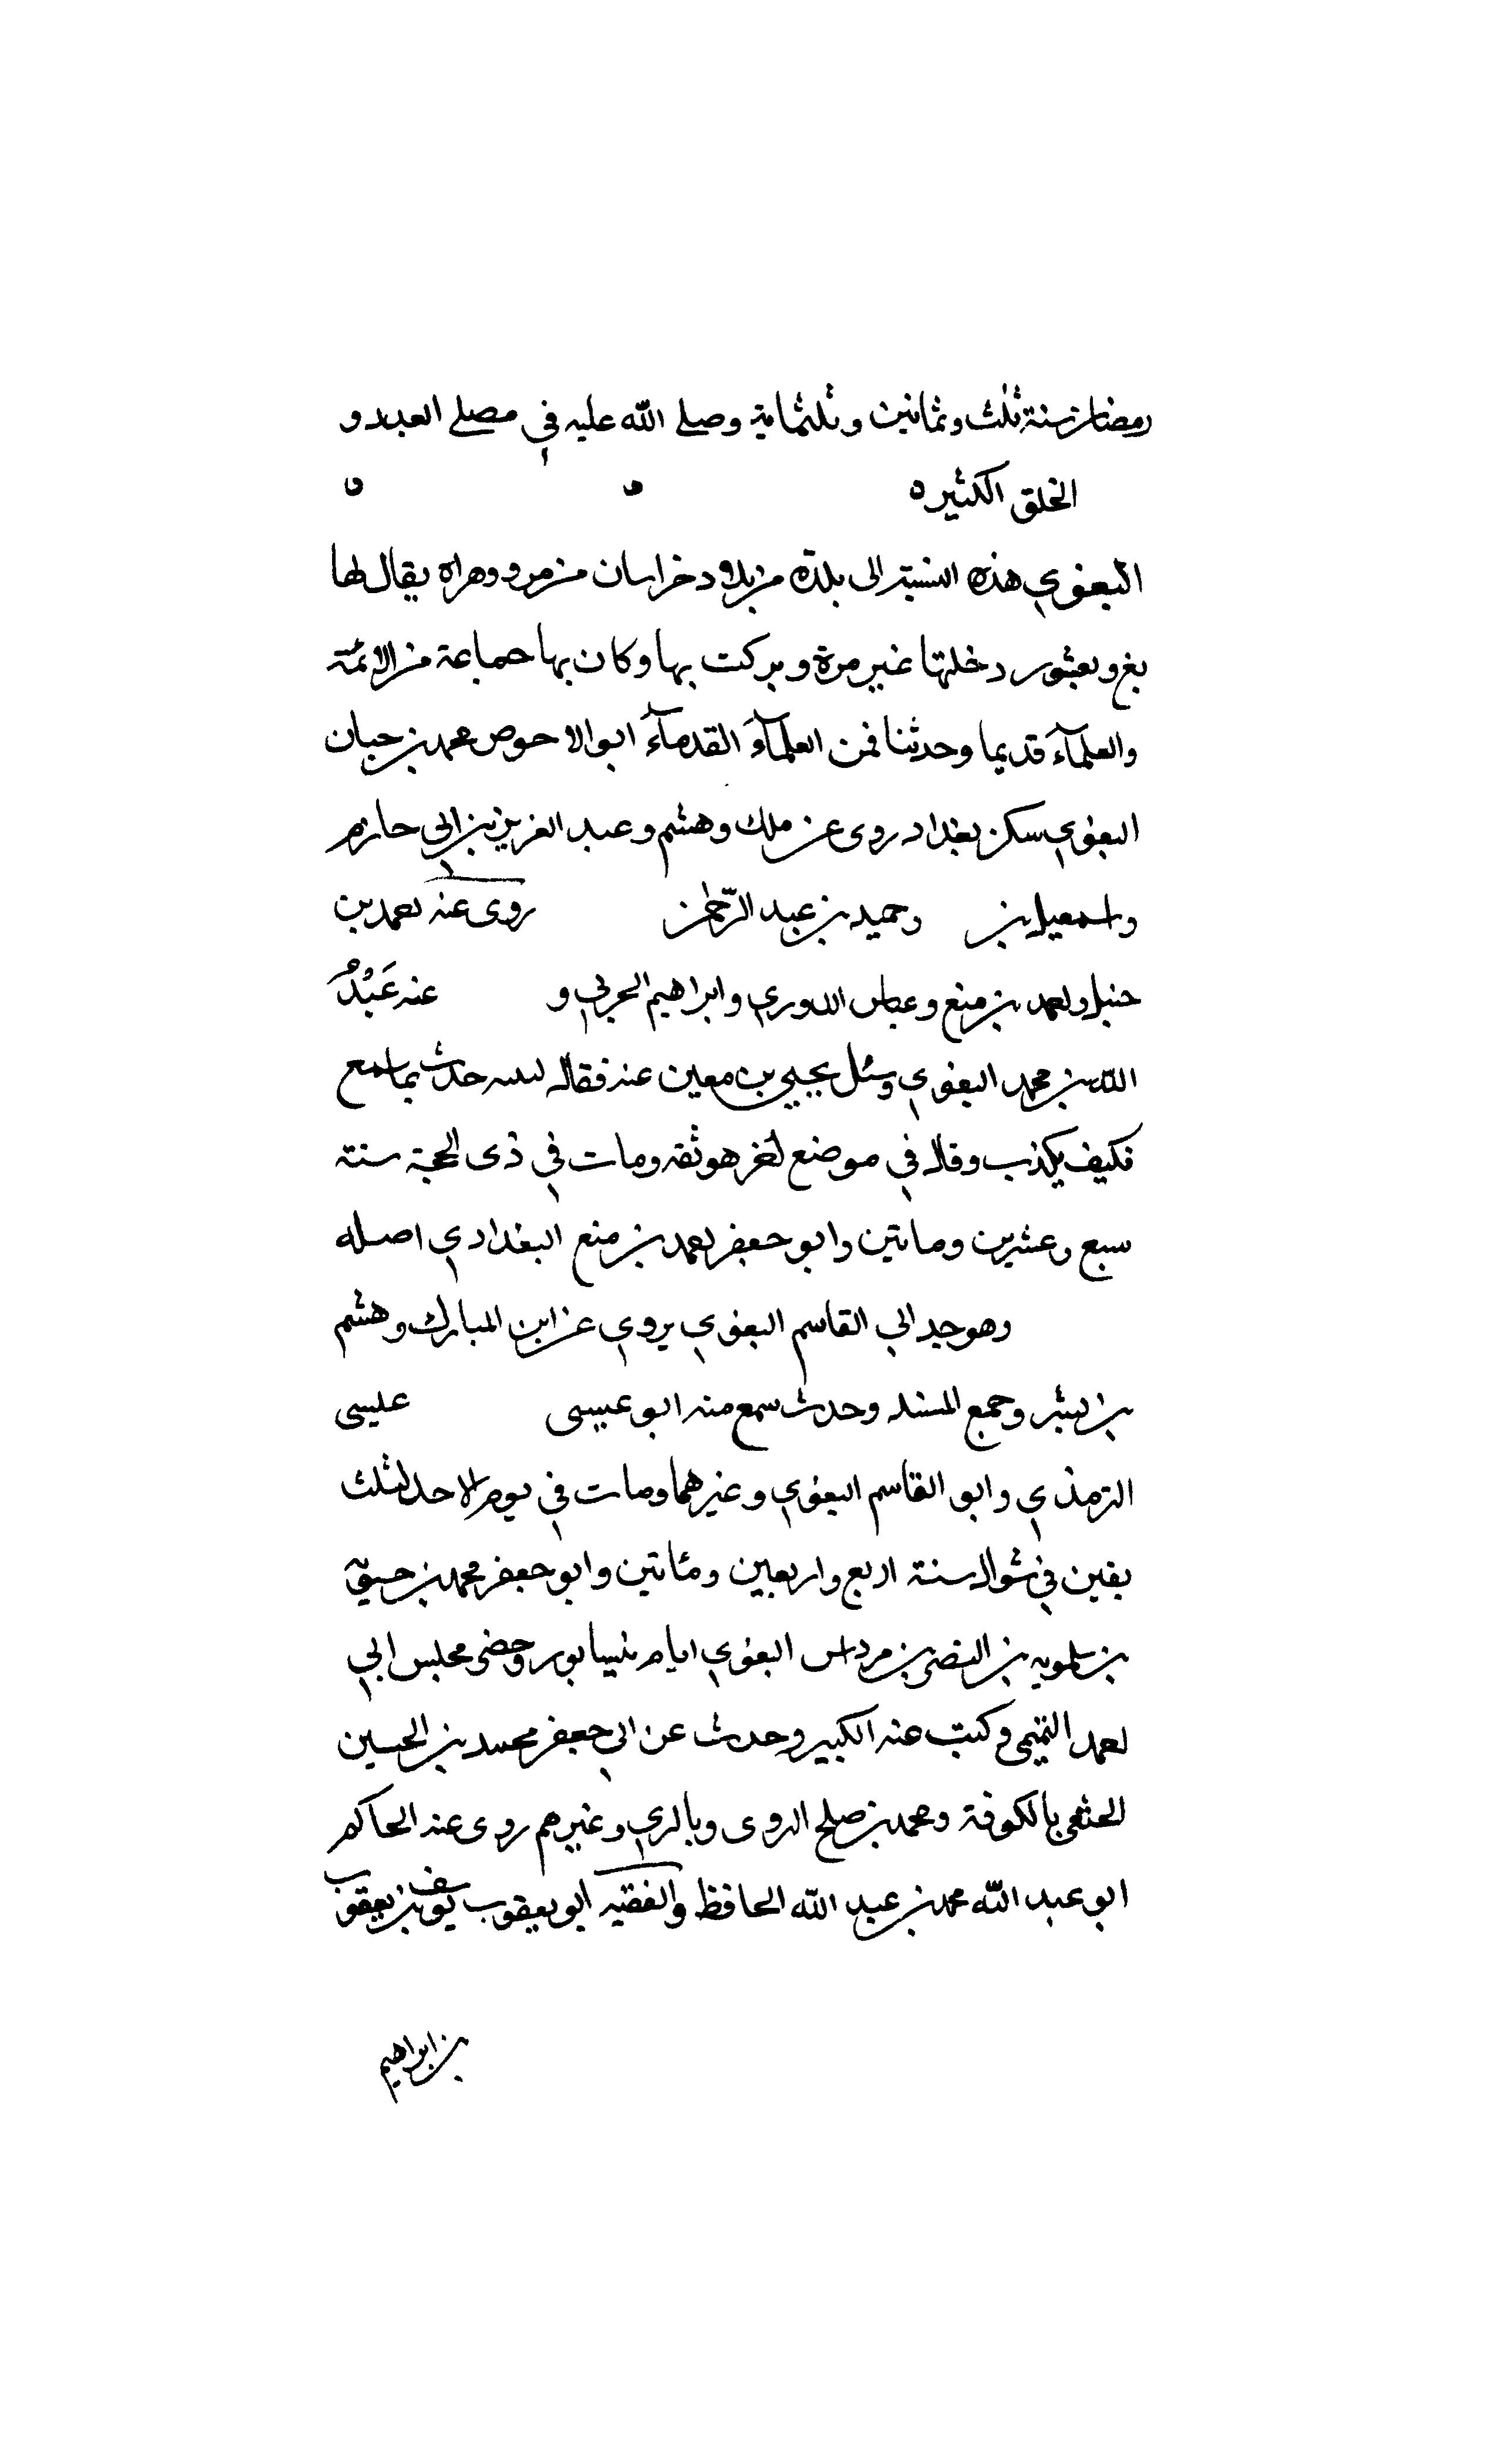 رمضان سنة ثلث وثمانين وثلثماية وصلى الله عليه في مصلى العيد و
الخلق الكثير ه
البغوي هذه النسبة الى بلدة من بلاد خراسان من مرو وهراه يقال لها
بغ وبغشور دخلتها غير مرة وبركت بها وكان بها جماعة من الائمة
والعلمآء قديما وحدثنا فمن العلمآء القدمآء ابو الاحوص محمد بن حيان
البغوي سكن بغداد روى عن ملك وهشم وعبد العزيز بن ابي حازم
واسمعيل بن وحميد بن عبد الرحمن روى عنه احمد بن
حنبل واحمد بن منع وعباس الدوري وابراهيم الحربي و عنه عبد
الله بن محمد البغوي وسئل يحيي بن معين عنه فقال ليس حدث بما سمع
فكيف يكذب وقال في موضع اخر هو ثقه ومات في ذى الحجة سنة
سبع وعشرين ومائتين وابو جعفر احمد بن منع البغدادي اصله
وهو جد ابي القاسم البغوي يروي عن ابن المبارك وهشم
بن بشر وجمع المسند وحدث سمع منه ابو عيسى عليسى
الترمذي وابو القاسم البغوي وغيرهما ومات في يوم الاحد لثلث
بقين في شوال سنة اربع واربعين ومئاتين وابو جعفر محمد بن
بن سلمويه بن النضر بن مرداس البغوي ايام نيسابور وحضر مجلس ابي
احمد التميمي وكتب عنه الكبير وحدث عن ابي جعفر محمد بن الحسين
الخثعمي بالكوفة ومحمد بن صلح الروى وبالري وغيرهم روى عنه الحاكم
ابو عبد الله محمد بن عبد الله الحافظ والفقيه ابو يعقوب يوسف بن يعقوب
بن ابراهيم